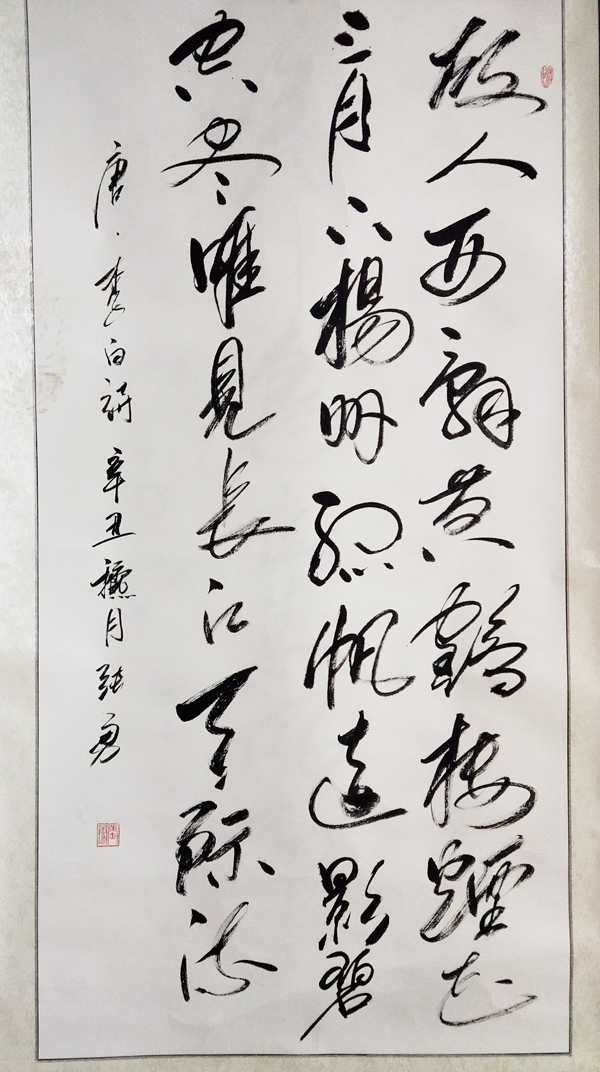 故人西辭黄鶴樓煙花
三月下楊州孤帆遠影碧
空尽唯見長江天際流
唐、李白詩 辛丑 月 張勇